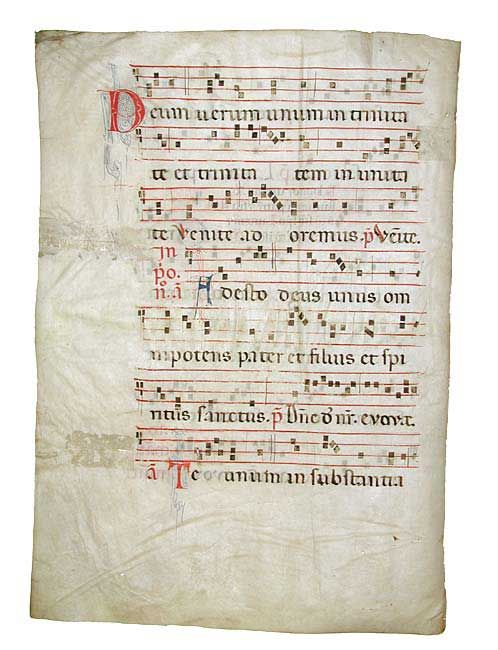 Deum uerum unum in trinita
te et trinita tem in unita
te Venite ad oremus. p̄ Venite.
In
po.
Adesto deus unus om
nipotens pater et filius et spi
ritus sanctus. p̄ Dn̄e
ā Te unum in substantia